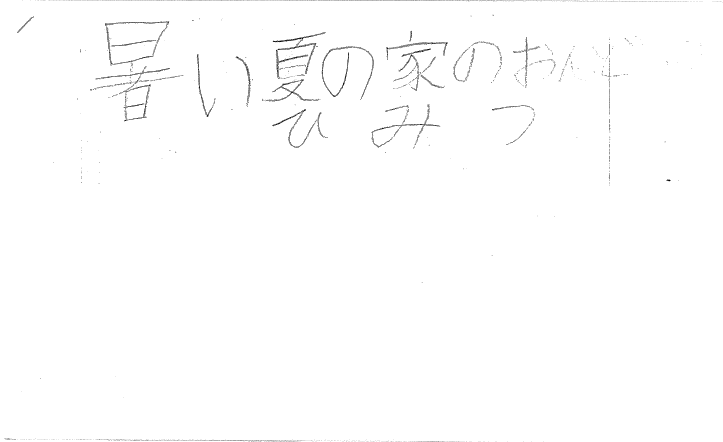 暑い夏の家のおんど
ひみつ